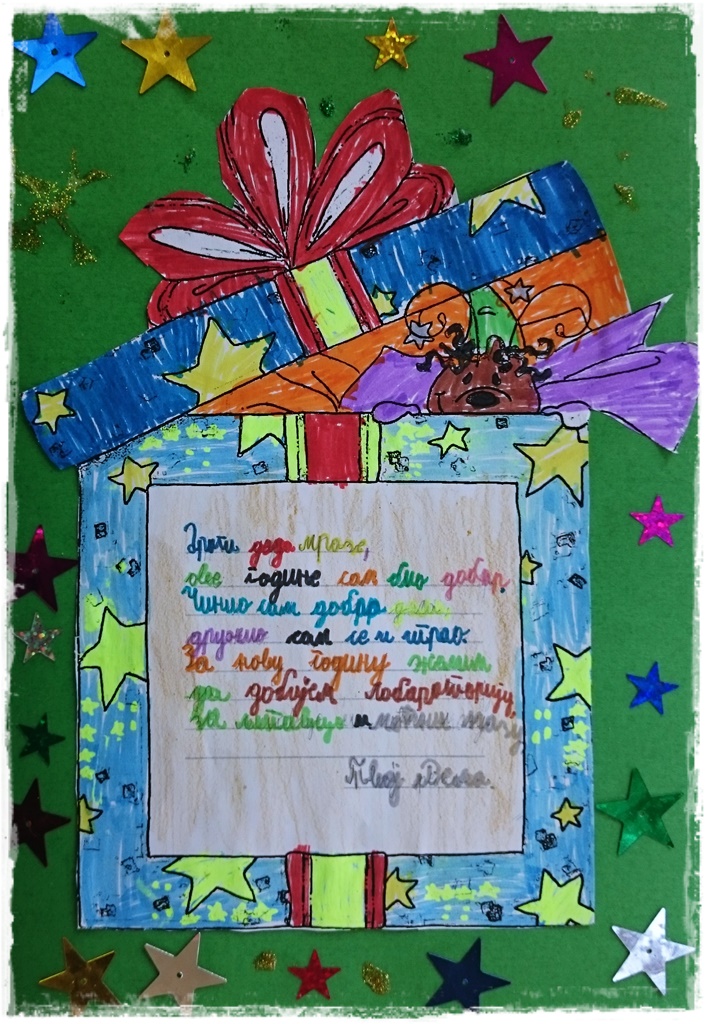 Драги деда мразе,
ове године сам био добар.
Чинио сам добра дела,
дружио сам се и играо.
За нову годину желим
да добијем лабораторију,
за и
Твој